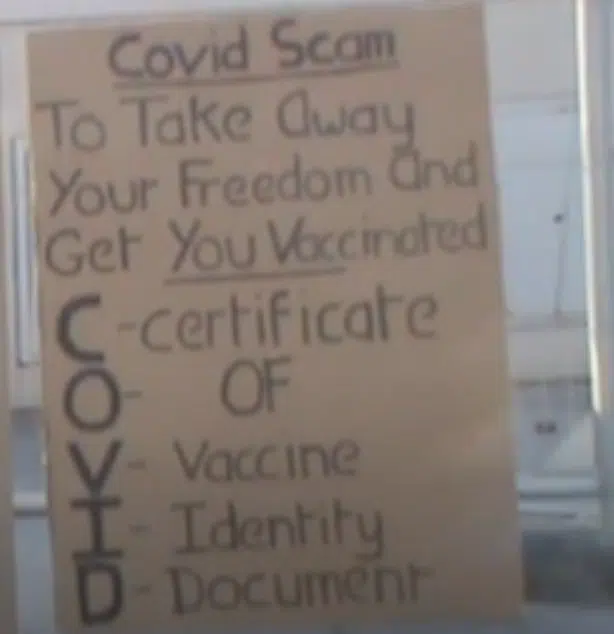 Covid Scam
To Take Away
Your Freedom And
Get You Vaccinated
C-certificate
O- OF
V- Vaccine
I- Identity
D- Document